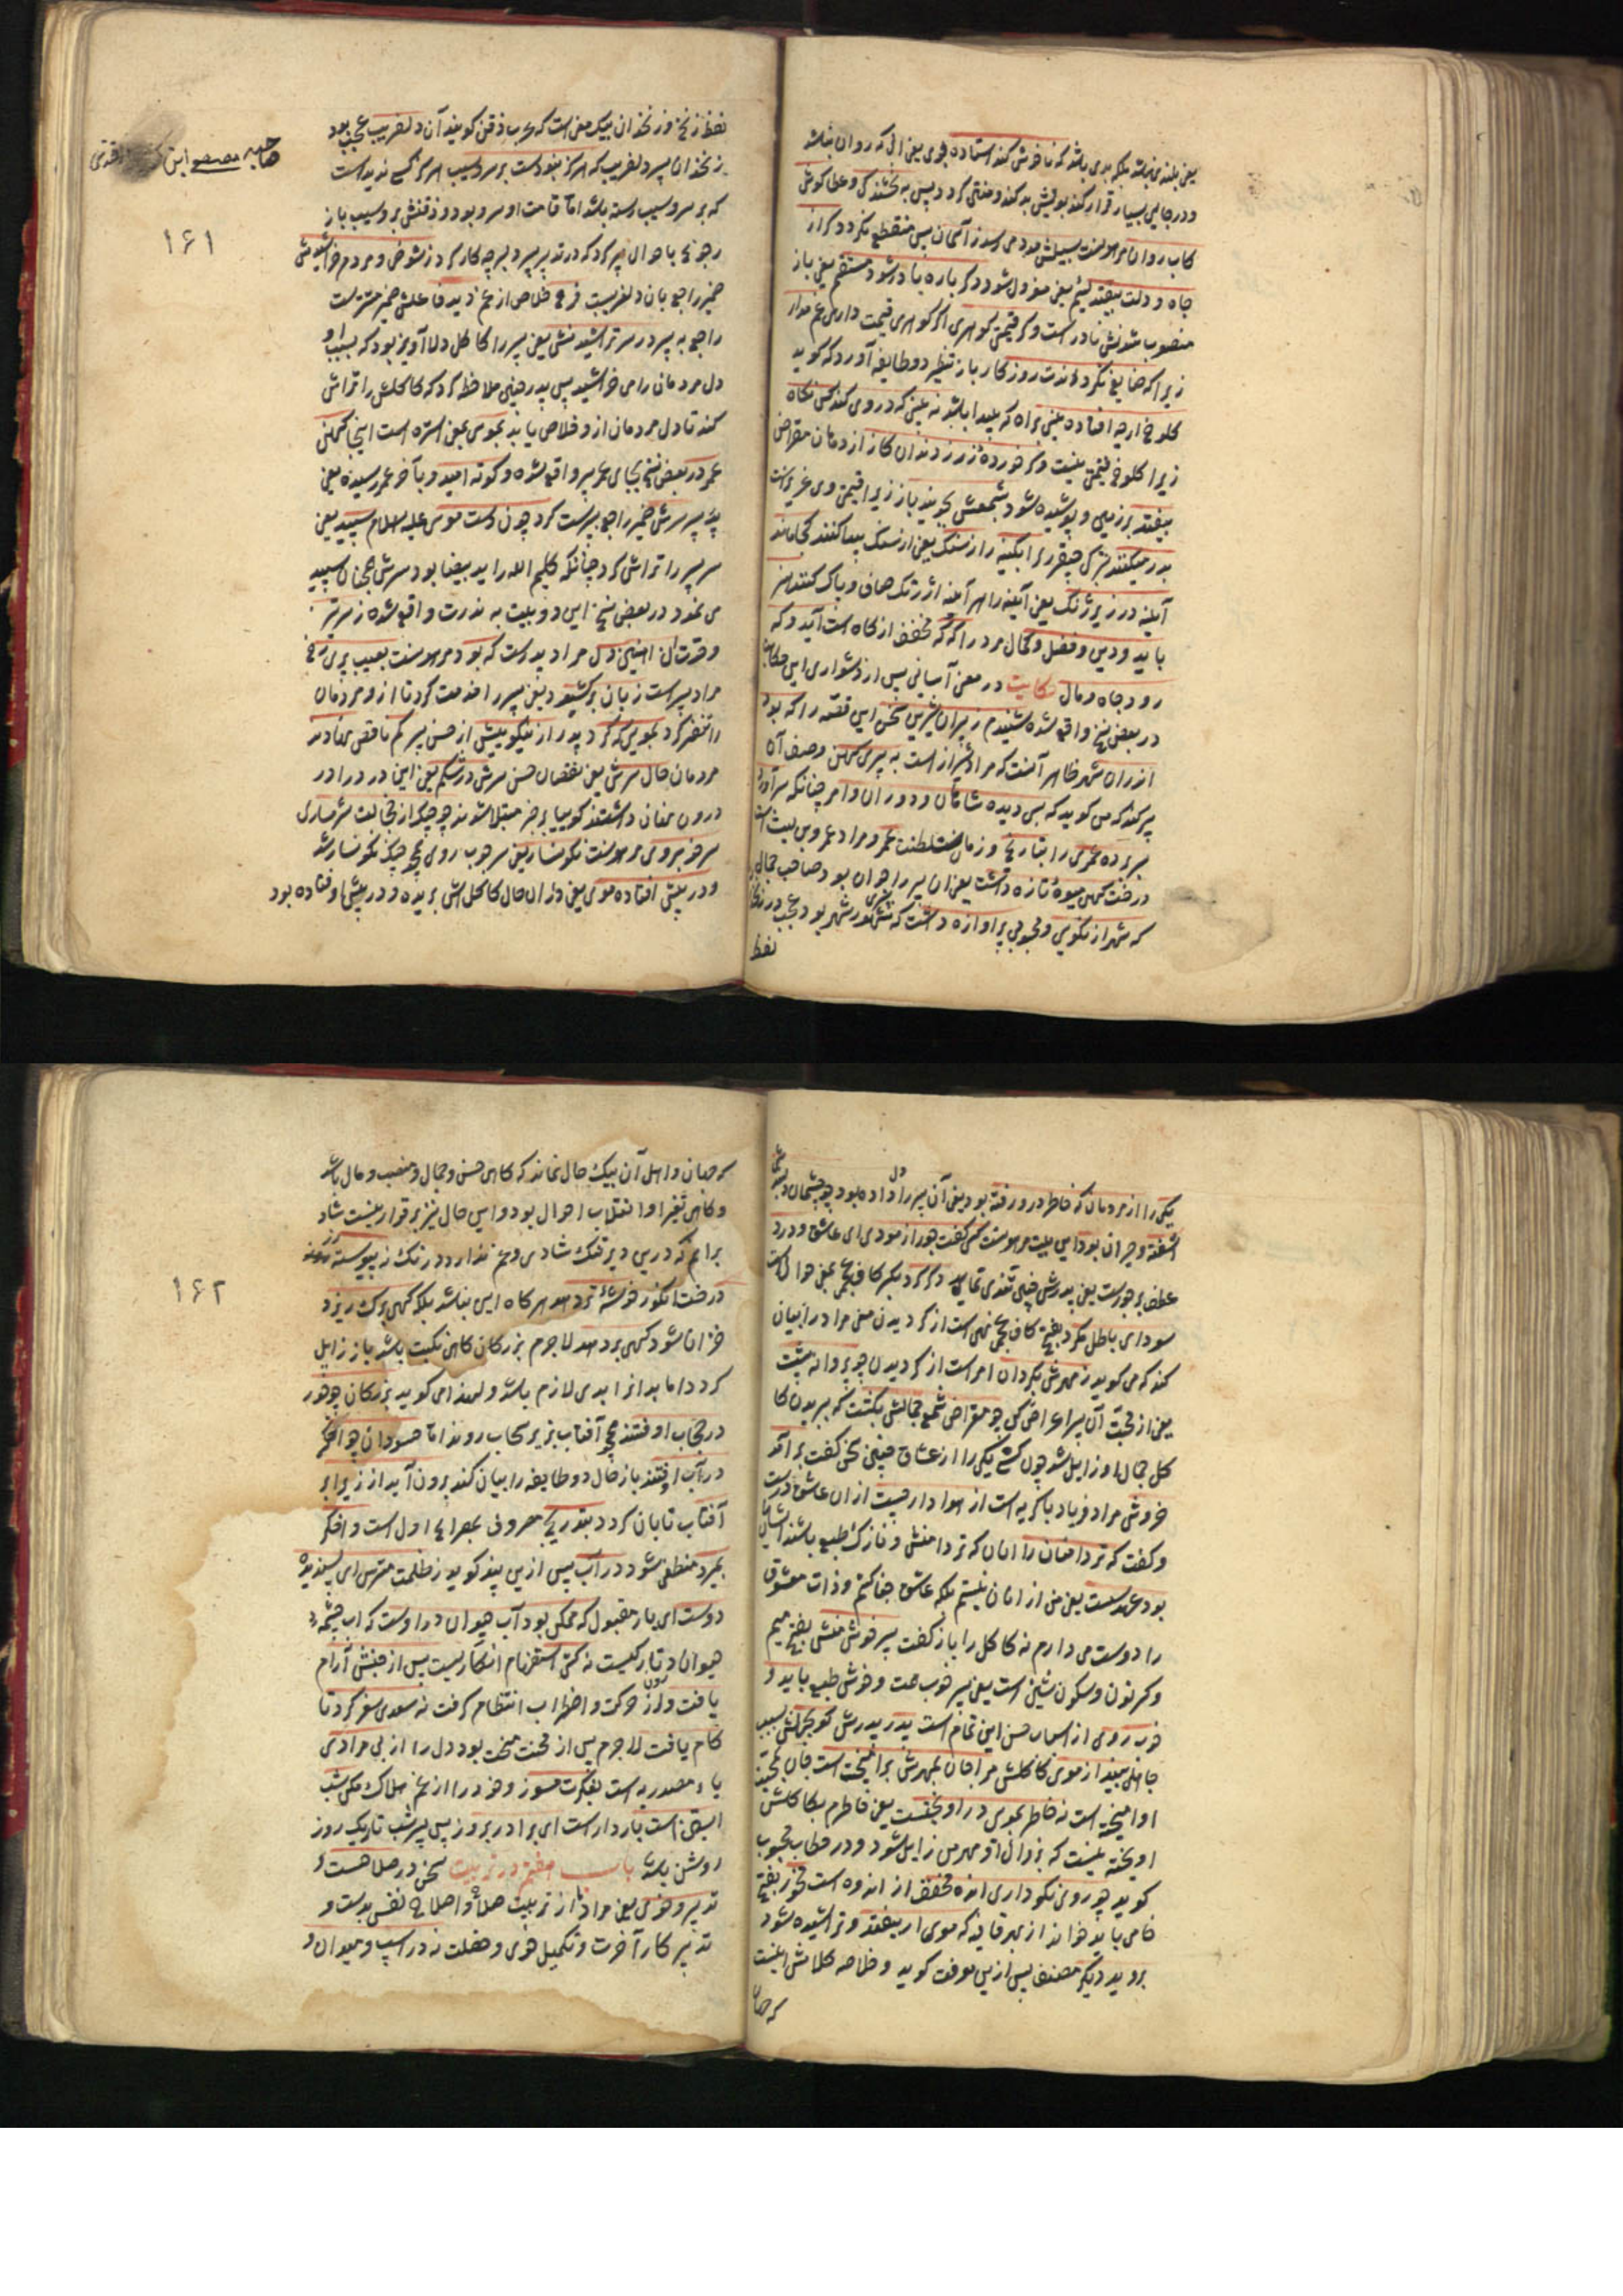 یعنی بلندی نباشد بلکه بدی باشد که ناخوش کند استاده بوی یعنی ال که روان نباشد
ودر جایی بسیار قرار کند بویش بد کند و منتی کردد پس به بخشندکی وعطا کوش
کاب روان مرهونست بسیلش مدد می رسد ز آسمان پس منقطع نکردد کر از
جاه و دولت بیفتد لئیم یعنی معزول شود دکر باره نادر شود مستقیم یعنی باز
منصوب شدنش نادر است وکر قیمتی کوهری اکر کوهری قیمت داری غم مدار
زیرا که ضایع نکرداندت روزکار باز تنظیر دو طایفه آورد که کوید
کلوخ ارچه افتاده بینی براه که پیدا باشد نه بینی که در وی کند کس نکاه
زیرا کلوخ قیمتی نیست وکر خوردهٔ زر ز دندان کاز از دهان مقراض
بیفتد بر زمین و پوشیده شود بشمعش بجویند باز زیرا قیمتی وی عزیز است
بدر میکنند آبکینه را از سنک یعنی از سنک پیدا کنند کجا ماند
آینه در زیر زنک یعنی آینه را هر آینه از زنک صاف و پاک کنند هنر
باید و دین وفضل وکمال مرد را که که مخفف از کاه است آید وکه
رود جاه ومال حکایت در معنی آسانی پس از دشواری این حکایت
در بعض نسخ واقع شده شنیدم ز پیران شیرین سخن این قصه را که بود
اندران شهر ظاهر آنست که مراد شیراز است به پیری کهن وصف آن
پیر کند که می کوید که بسی دیده شاهان ودوران وامر چنانکه سرآورد
بربرده عمری را بتاریخ و زمان سلطنت عمرو مراد عمرو بن لیث است
درخت کهن میوهٔ تازه داشت یعنی ان پیر را جوان بود صاحب جمال
که شهر از نکویی و محبوبی پر اوازه داشت که مشهور شهر بود عجب در زنخ
لفظ
لفظ زنخ وزنخدان بیک معنی است که عرب ذقن کویند آن دلفریب عجب بود
زنخدان پسر دلفریب که هرکز نبودست بر سرو سیب هرکز کسی ندیدست
که بر سرو سیب رسته باشد اما قامت او سرو بود و زقنش برو سیب باز
رجوع باحوال پسر کرد که در تدبیر پسر پدر چه کار کرد ز شوخی ومردم خراشیدنش
ضمیر راجع بان دلفریب فرج خلاص از غم دید فاعلش ضمیر مستترست
راجع به پدر در سر تراشیدنش یعنی پسر را کاکل دلاآویز بود که بسبب او
دل مردمان را می خراشید پس پدر چنین ملاحظه کرد که کاکلش را تراش
کند تا دل مردمان ازو خلاص یابند بموسی یعنی استره است اینجا کهن
عمر در بعض نسخ بجای عمر پیر واقع شده و کوته امید و بآخر عمر رسیده یعنی
پدر پسر سرش ضمیر راجع بپسرست کرد چون دست موسی علیه السلام سپید یعنی
سر پسر را تراش کرد چنانکه کلیم الله را ید بیضا بود سرش همچنان سپید
می نمود در بعض نسخ این دو بیت به ندرت واقع شده ز سر تیز
وقرت ان اهنین دل مراد پدرست که بود مرهونست بعیب پری رخ
مراد پسرست زبان برکشود یعنی پسر را مذمت کرد تا ازو مردمان
را تنفر کرد بمویی که کرد پدر از نیکوییش از حسن پسر کم ناقص نهادند
مردمان حال سرش یعنی نقصان حسن سرش در شکم یعنی این درد را در
درون نهان داشتند کوییا بر جبر مبتلا شوند چو چنک از خجالت شرمساری
سر خوبروی مرهونست نکونسار یعنی سر خوب روی همچو چنک نکونسار شد
ودر پیش افتاده موی یعنی دران حال کاکلش بریده ودر پیش او فتاده بود
صاحبه مصححه ابن
۱۶۱
یکی را از مردمان که خاطر در و رفته بود یعنی آن پسر را دل داده بود چو چشمان دلبند
اشفته وحیران بود این بیت مرهونست کسی کفت جور از مودی ای عاشق ودرد
سودای باطل مکرد بفتح کاف عجمی نهی است از کردیدن معنی مراد را بیان
کند که می کوید ز مهرش بکردان امرست از کردیدن چو پروانه پشت
یعنی از محبت آن پسر اعراض کن چو مقراض شمع جمالش بکشت که ببریدن کا
کل جمال او زایل شد چون کسی یکی را از عشاق چنین سخن کفت بر آمد
خروش مراد فریاد باکریه است از هوادار چست ازان عاشق درست
وکفت که تردامنان را انان که تردامنش ونازک طبع باشند ایشان
بود عهد سست یعنی من از انان نیستم بلکه عاشق جفاکشم وذات معشوق
را دوست می دارم نه کاکل را باز کفت پسر خوش منش بفتح میم
وکسر نون وسکون شین است یعنی پسر خوب صت وخوش طبع باید و
خوب روی از اسباب حسن این تمام است پدر پدرش کو بجهلش بسبب
جاهلی بینداز موی کاکلش مرا جان بمهرش برآمیخت است جان بمحبت
او امیخته است نه خاطر بموی در اویختست یعنی خاطرم بکاکلش
اویخته نیست که بزوال او مهر من زایل شود ودر خطاب محبوب
کوید چو روی نکو داری انده مخفف از اندوه است مخور بفتح
خا می باید خواند از بهر قافیه که موی ار بیفتد وتراشیده شود
بروید دیکر مصنف پس ازین موعظت کوید وخلاصه کلامش اینست
که جهان
که جهان واهل آن بیک حال نماند که کاهی حسن وجمال ومنصب ومال باشد
وکاهی تغیر او انقلاب احوال بود واین حال نیز بر قرار نیست شاد
برانم که درین دیر تنک شادی وغم ندارد درنک نه پیوسته
درخت انکور خوشهٔ تر دهد هر کاه این نباشد بلکه کهی برک ریزد
خزان شود کهی بر دهد لاجرم بزرکان کاهی نکبت باشد باز زایل
کردد اما بد انرا بدی لازم باشد ولهذا می کوید بزرکان چو خور
در حجاب اوفتند همچو آفتاب بزیر سحاب روند اما حسودان چو اخکر
در آب اوفتند باز حال دو طایفه را بیان کند برون آید از زیر ابر
آفتاب تابان کردد بتدریج معروف بمصراع اول است واخکر
بمیرد منطفی شود در آب پس ازین پند کوید ز ظلمت مترس ای پسندیده
دوست ای یار مقبول که ممکن بود آب حیوان در اوست که اب چشمه
حیوان در تاریکیست نه کیتی استفهام انکاریست پس از جنبش آرام
یافت ودرون ز حرکت واضطراب انتظام کرفت نه سعدی سفر کرد تا
کام یافت لاجرم پس از محنت محنت بود دل را از بی مرادی
یاء مصدریه است بفکرت مسوز وخود را از غم هلاک مکن شب
ابستن است باردار است ای برادر بروز پس پسر شب تاریک روز
روشن باشد باب هفتم در تربیت سخن در صلاحست و
تدبیر وخوی یعنی مراد ما از تربیت صلاح واصلاح نفس بدست و
تدبیر کار آخرت وتکمیل خوی وخصلت نه در اسپ ومیدان و
۱۶۲